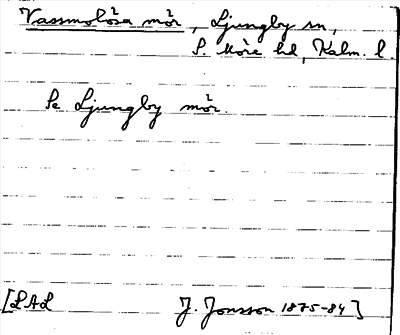 Vassmolösa mor, Ljungby sn,
S. Möre hd, Kalm. l.
Se Ljungby mor.
[LAL J. Jonsson 1875-84]